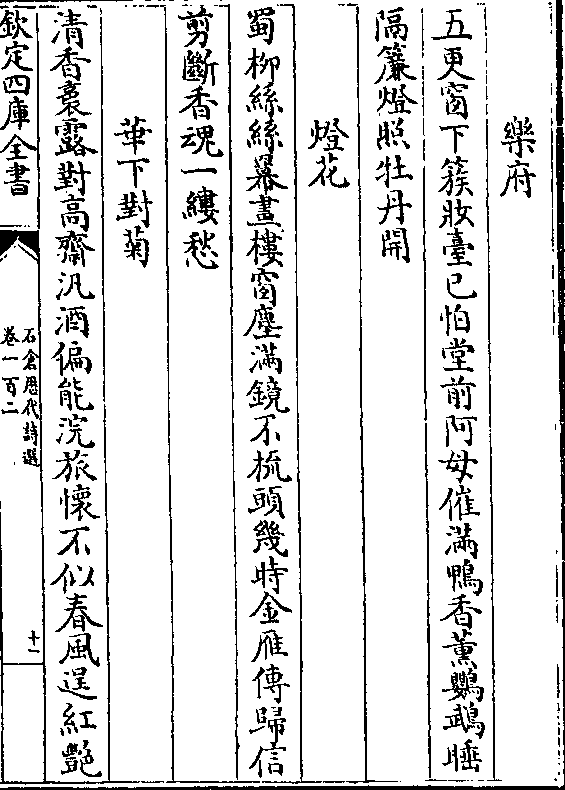 樂府
五更窗下簇妝臺已怕堂前阿母催滿鴨香薰鸚鵡睡
隔簾燈照牡丹開
燈花
蜀柳絲絲羃畫樓窗塵滿鏡不梳頭幾時金雁傳歸信
剪斷香魂一縷愁
華下對菊
清香裛露對高齋汎酒偏能浣旅懷不似春風逞紅艷
欽定四庫全書
石倉歷代詩選
卷一百二
十一